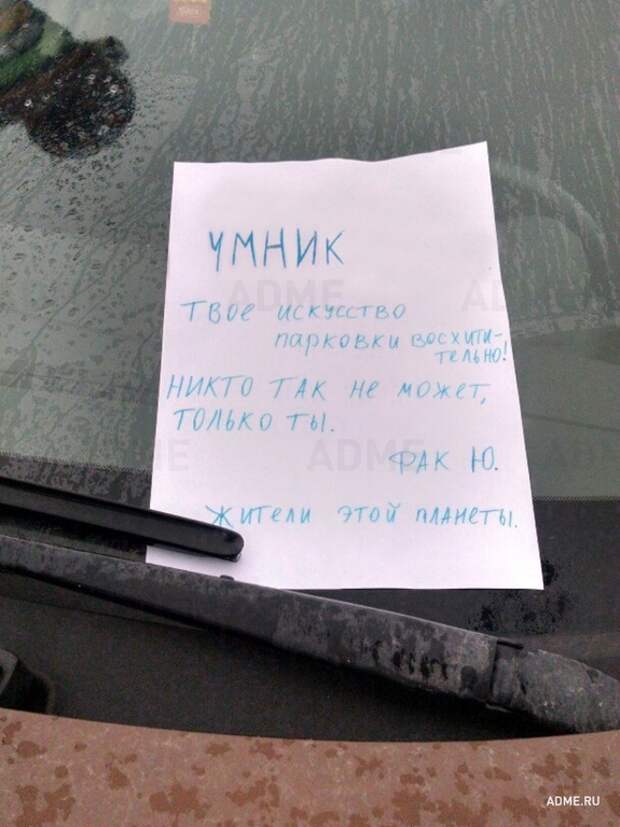 УМНИК
ТВОЕ ИСКУССТВО
ПАРКОВКИ ВОСХИТИ-
ТЕЛЬНО!
НИКТО ТАК НЕ МОЖЕТ,
ТОЛЬКО ТЫ.
ФАК Ю.
ЖИТЕЛИ ЭТОЙ ПЛАНЕТЫ.
ADME.RU